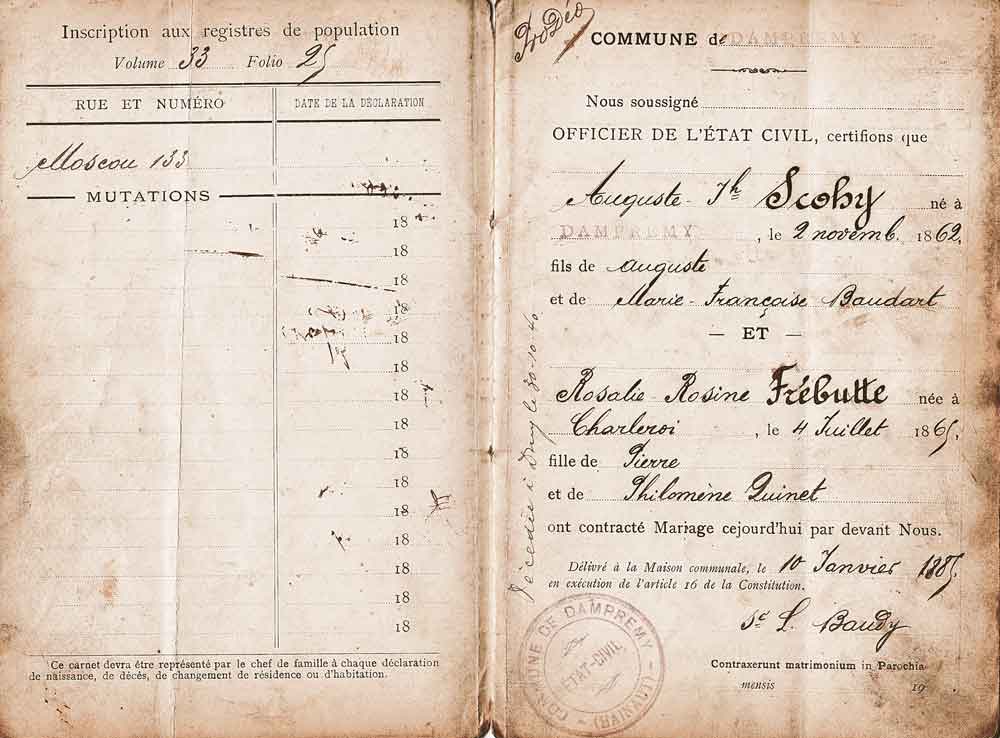 Inscription aux registres de population
Volume 33 Folio 25
RUE ET NUMÉRO
DATE DE LA DÉCLARATION
Moscou 133
MUTATIONS
18
18
18
18
18
18
18
18
18
18
18
18
18
18
18
Ce carnet devra être représenté par le chef de famille à chaque déclaration
de naissance, de décès, de changement de résidence ou d'habitation.
Pro Déo
COMMUNE de DAMPREMY
Nous soussigné
OFFICIER DE L'ÉTAT CIVIL, certifions que
Auguste - Jh Scohy né à
DAMPREMY, le 2 novemb. 1862,
fils de Auguste
et de Marie - Françoise Baudart
— ET —
Rosalie - Rosine Frébutte née à
Charleroi, le 4 Juillet 1865,
fille de Pierre
et de Philomène Quinet
ont contracté Mariage cejourd'hui par devant Nous.
Délivré à la Maison communale, le 10 Janvier 1885,
en exécution de l'article 16 de la Constitution.
L. Baudy
Contraxerunt matrimonium in Parochia
mensis 19
COMMUNE DE DAMPREMY
ÉTAT-CIVIL
(HAINAUT)
le 30-10-40